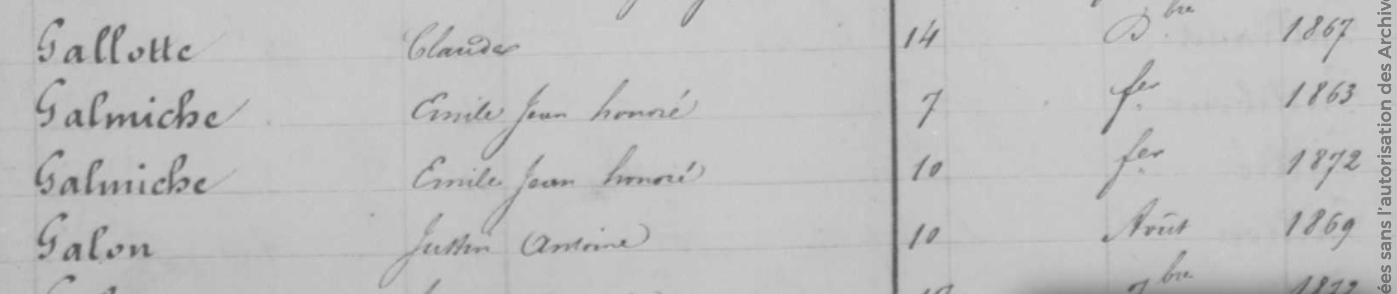 Gallotte Claude 14 D.bre 1867
Galmiche Emile Jean honoré 7 fer 1863
Galmiche Emile Jean honoré 10 fer 1872
Galon Justin Antoine 10 Août 1869
bre 1872
ées sans l'autorisation des Archiv